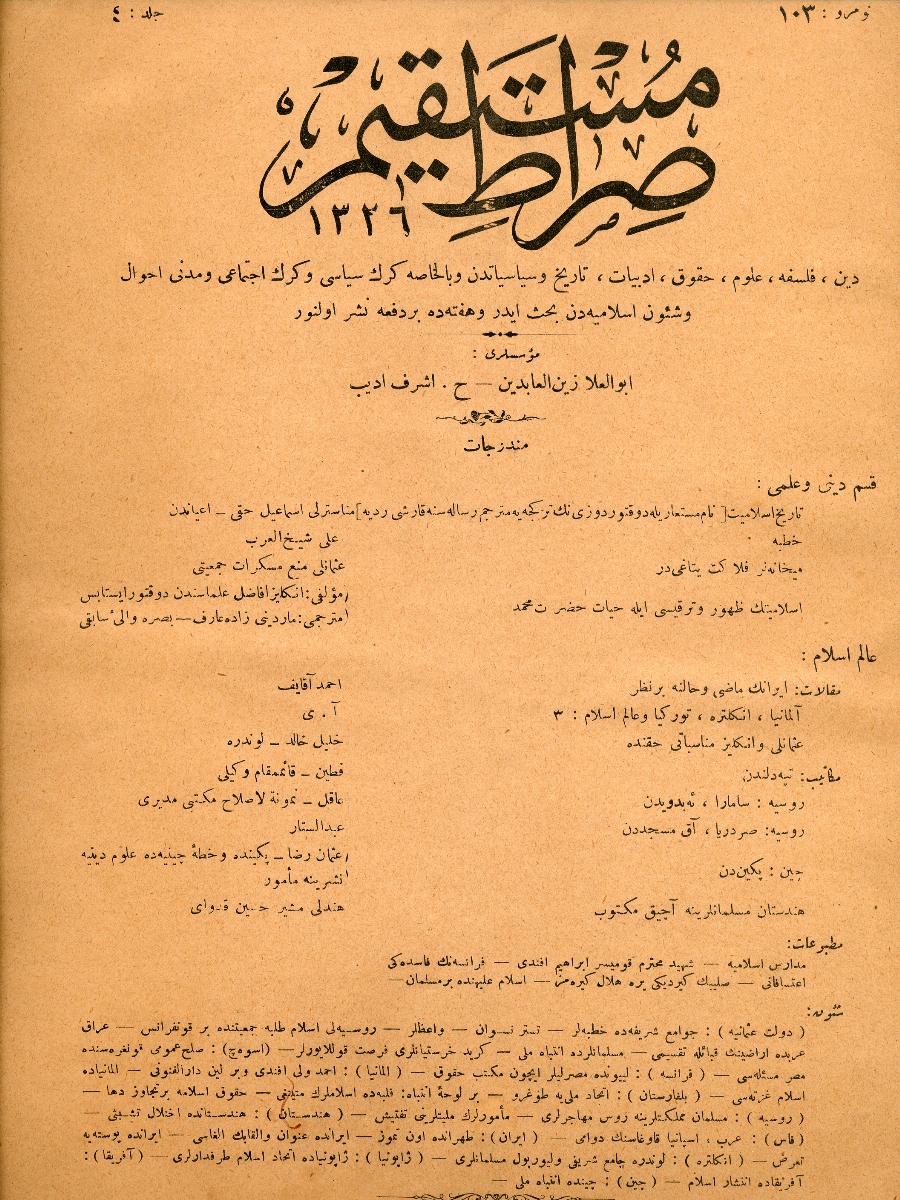 نومرو : ١٠٣
جلد : ٤
صراط مستقيم
١٣٢٦
دين ، فلسفه ، علوم ، حقوق ، ادبيات ، تاريخ وسياسياتدن وبالخاصه كرك سياسى وكرك اجتماعى ومدنى احوال
وشئون اسلاميه‌دن بحث ايدر وهفته‌ده بردفعه نشر اولنور
مؤسسلرى :
ابوالعلا زين‌العابدين — ح . اشرف اديب
مندرجات
قسم دينى وعلمى :
تاريخ اسلاميت [ نام مستعاريله دوقتور دوزى نك تركجه‌يه مترجم رساله‌سنه قارشى رديه ] مناسترلى اسماعيل حقى ـ اعياندن
خطبه
على شيخ‌العرب
ميخانه‌لر فلاكت يتاغى‌در
عثمانلى منع مسكرات جمعيتى
اسلاميتك ظهور وترقيسى ايله حيات حضرت محمد
مؤلفى : انكليز افاضل علماسندن دوقتور ايستابس
مترجمى : ماردينى زاده عارف — بصره والىٔ سابقى
عالم اسلام :
مقالات : ايرانك ماضى وحالنه برنظر
احمد آقايف
آلمانيا ، انكلتره ، توركيا وعالم اسلام : ٣
آ . ى
عثمانلى وانكليز مناسباتى حقنده
خليل خالد ـ لوندره
مكاتيب : تپه‌دلندن
فطين ـ قائممقام وكيلى
روسيه : سامارا ،
عاقل ـ نمونهٔ لاصلاح مكتبى مديرى
روسيه : صردريا ، آق مسجددن
عبدالستار
چين : پكين‌دن
عثمان رضا ـ پكينده وخطهٔ چينيه‌ده علوم دينيه
نشرينه مأمور
هندستان مسلمانلرينه آچيق مكتوب
هندلى مشير حسين قدواى
مطبوعات :
مدارس اسلاميه — شهيد محترم قوميسر ابراهيم افندى — فرانسه‌نك فاسده‌كى
اعتسافاتى — صليبك كيرديكى يره هلال كيره‌مز — اسلام عليهنده برمسلمان —
شئون :
( دولت عثمانيه ) : جوامع شريفه‌ده خطبه‌لر — تستر نسوان — واعظلر — روسيه‌لى اسلام طلبه جمعيتنده بر قونفرانس — عراق
عربده اراضينك قبائله تقسيمى — مسلمانلرده انتباه ملى — كريد خرستيانلرى فرصت قوللايورلر — (اسوه‌چ) : صلح عمومى قونغره‌سنده
مصر مسئله‌سى — ( فرانسه ) : ليونده مصرليلر ايچون مكتب حقوق — ( المانيا ) : احمد ولى افندى وبر لين دارالفنونى — المانياده
اسلام غزته‌سى — ( بلغارستان ) : اتحاد ملى‌يه طوغرو — بر لوحهٔ انتباه : فلبه‌ده اسلاملرك — حقوق اسلامه برتجاوز دها —
( روسيه ) : مسلمان مملكتلرينه روس مهاجرلرى — مأمورلرك مليتلرينى تفتيش — ( هندستان ) : هندستانده اختلال تشبثى —
( فاس ) : عرب ، اسپانيا قاوغاسنك دوامى — ( ايران ) : طهرانده اون تموز — ايرانده عنوان والقابك الغاسى — ايرانده پوسته‌يه
تعرض — ( انكلتره ) : لوندره جامع شريفى وليورپول مسلمانلرى — ( ژاپونيا ) : ژاپونياده اتحاد اسلام طرفدارلرى — ( آفريقا ) :
آفريقاده انتشار اسلام — ( چين ) : چينده انتباه ملى —